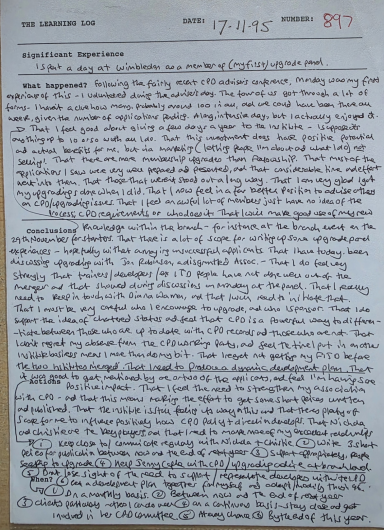 THE LEARNING LOG DATE: 17-11-95 NUMBER: 897
Significant Experience
I spent a day at Wimbledon as a member of (my first) upgrade panel.
What happened? Following the fairly recent CPD advisers conference, Monday was my first
experience of this - I volunteered during the advisers day. The four of us got through a lot of
forms. I haven't a clue how many, probably around 100 in all, and we could have been there all
week, given the number of applications pending. A long, intensive day, but I actually enjoyed it.
That I feel good about giving a few days a year to the institute - I suppose it's
anything up to 10 or so with all I do. That this investment does have positive potential
and actual benefits for me, but via marketing (letting people I'm about and what I do) not
selling. That there are more membership upgrades than Fellowship. That most of the
applications I saw were very well prepared and presented, and that considerable time and effort
went into them. That those that went stand out a long way. That I am very glad I got
my upgrading done when I did. That I now feel in a far better position to advise others
on CPD/upgrading issues. That I feel an awful lot of members just have no idea of the
process, CPD requirements or who does it. That I will make good use of my new
Conclusions knowledge within the branch - for instance at the branch event on the
29th November for starters. That there is a lot of scope for writing up some upgrade panel
experiences - hopefully without annoying unsuccessful applicants. That I have today been
discussing upgrading with Jan a disgruntled Assoc. - That I do feel very
strongly that trainers/developers (or ITD people) have not done well out of the
merger and that showed during discussions on Monday at the panel. That I really
need to keep in touch with and that I will need to initiate that.
That I must be very careful who I encourage to upgrade, and who I sponsor. That I do
support the idea of chartered status and feel that CPD is a powerful way to differen-
tiate between those who are up to date with CPD records and those who are not. That
I don't regret my absence from the CPD working party, and feel the time I put in another
invisible business means I more than do my bit. That I regret not getting my FITD before
the two institutes merged. That I need to produce a dynamic development plan. That
it was good to get mentioned by one or two of the applicants, and feel I'm having some
Actions positive impact. - That I feel the need to strengthen my association
with CPD - and that this means making the effort to get some short pieces written
and published. That the institute is still feeling its way on this and that there's plenty of
scope for me to influence positively how CPD policy + direction develops. That Nichola
and Chris are the key players and that I need to make more of my
① Keep close to/communicate regularly with Nichola + Chris ② Write 3 short
pieces for publication between now and the end of next year ③ Support appropriately, people
seeking to upgrade ④ Help Jenny cope with CPD/upgrading advice at branch level
⑤ Don't lose sight of the need to support/represent developers within the IPD
When? ⑥ Get a development plan together for myself and adopt/modify
① On a monthly basis. ② Between now and the end of next year
③ ④ on a continuous basis + stay close and get
involved in her CPD Committee ⑤ ⑥ By the end of this year